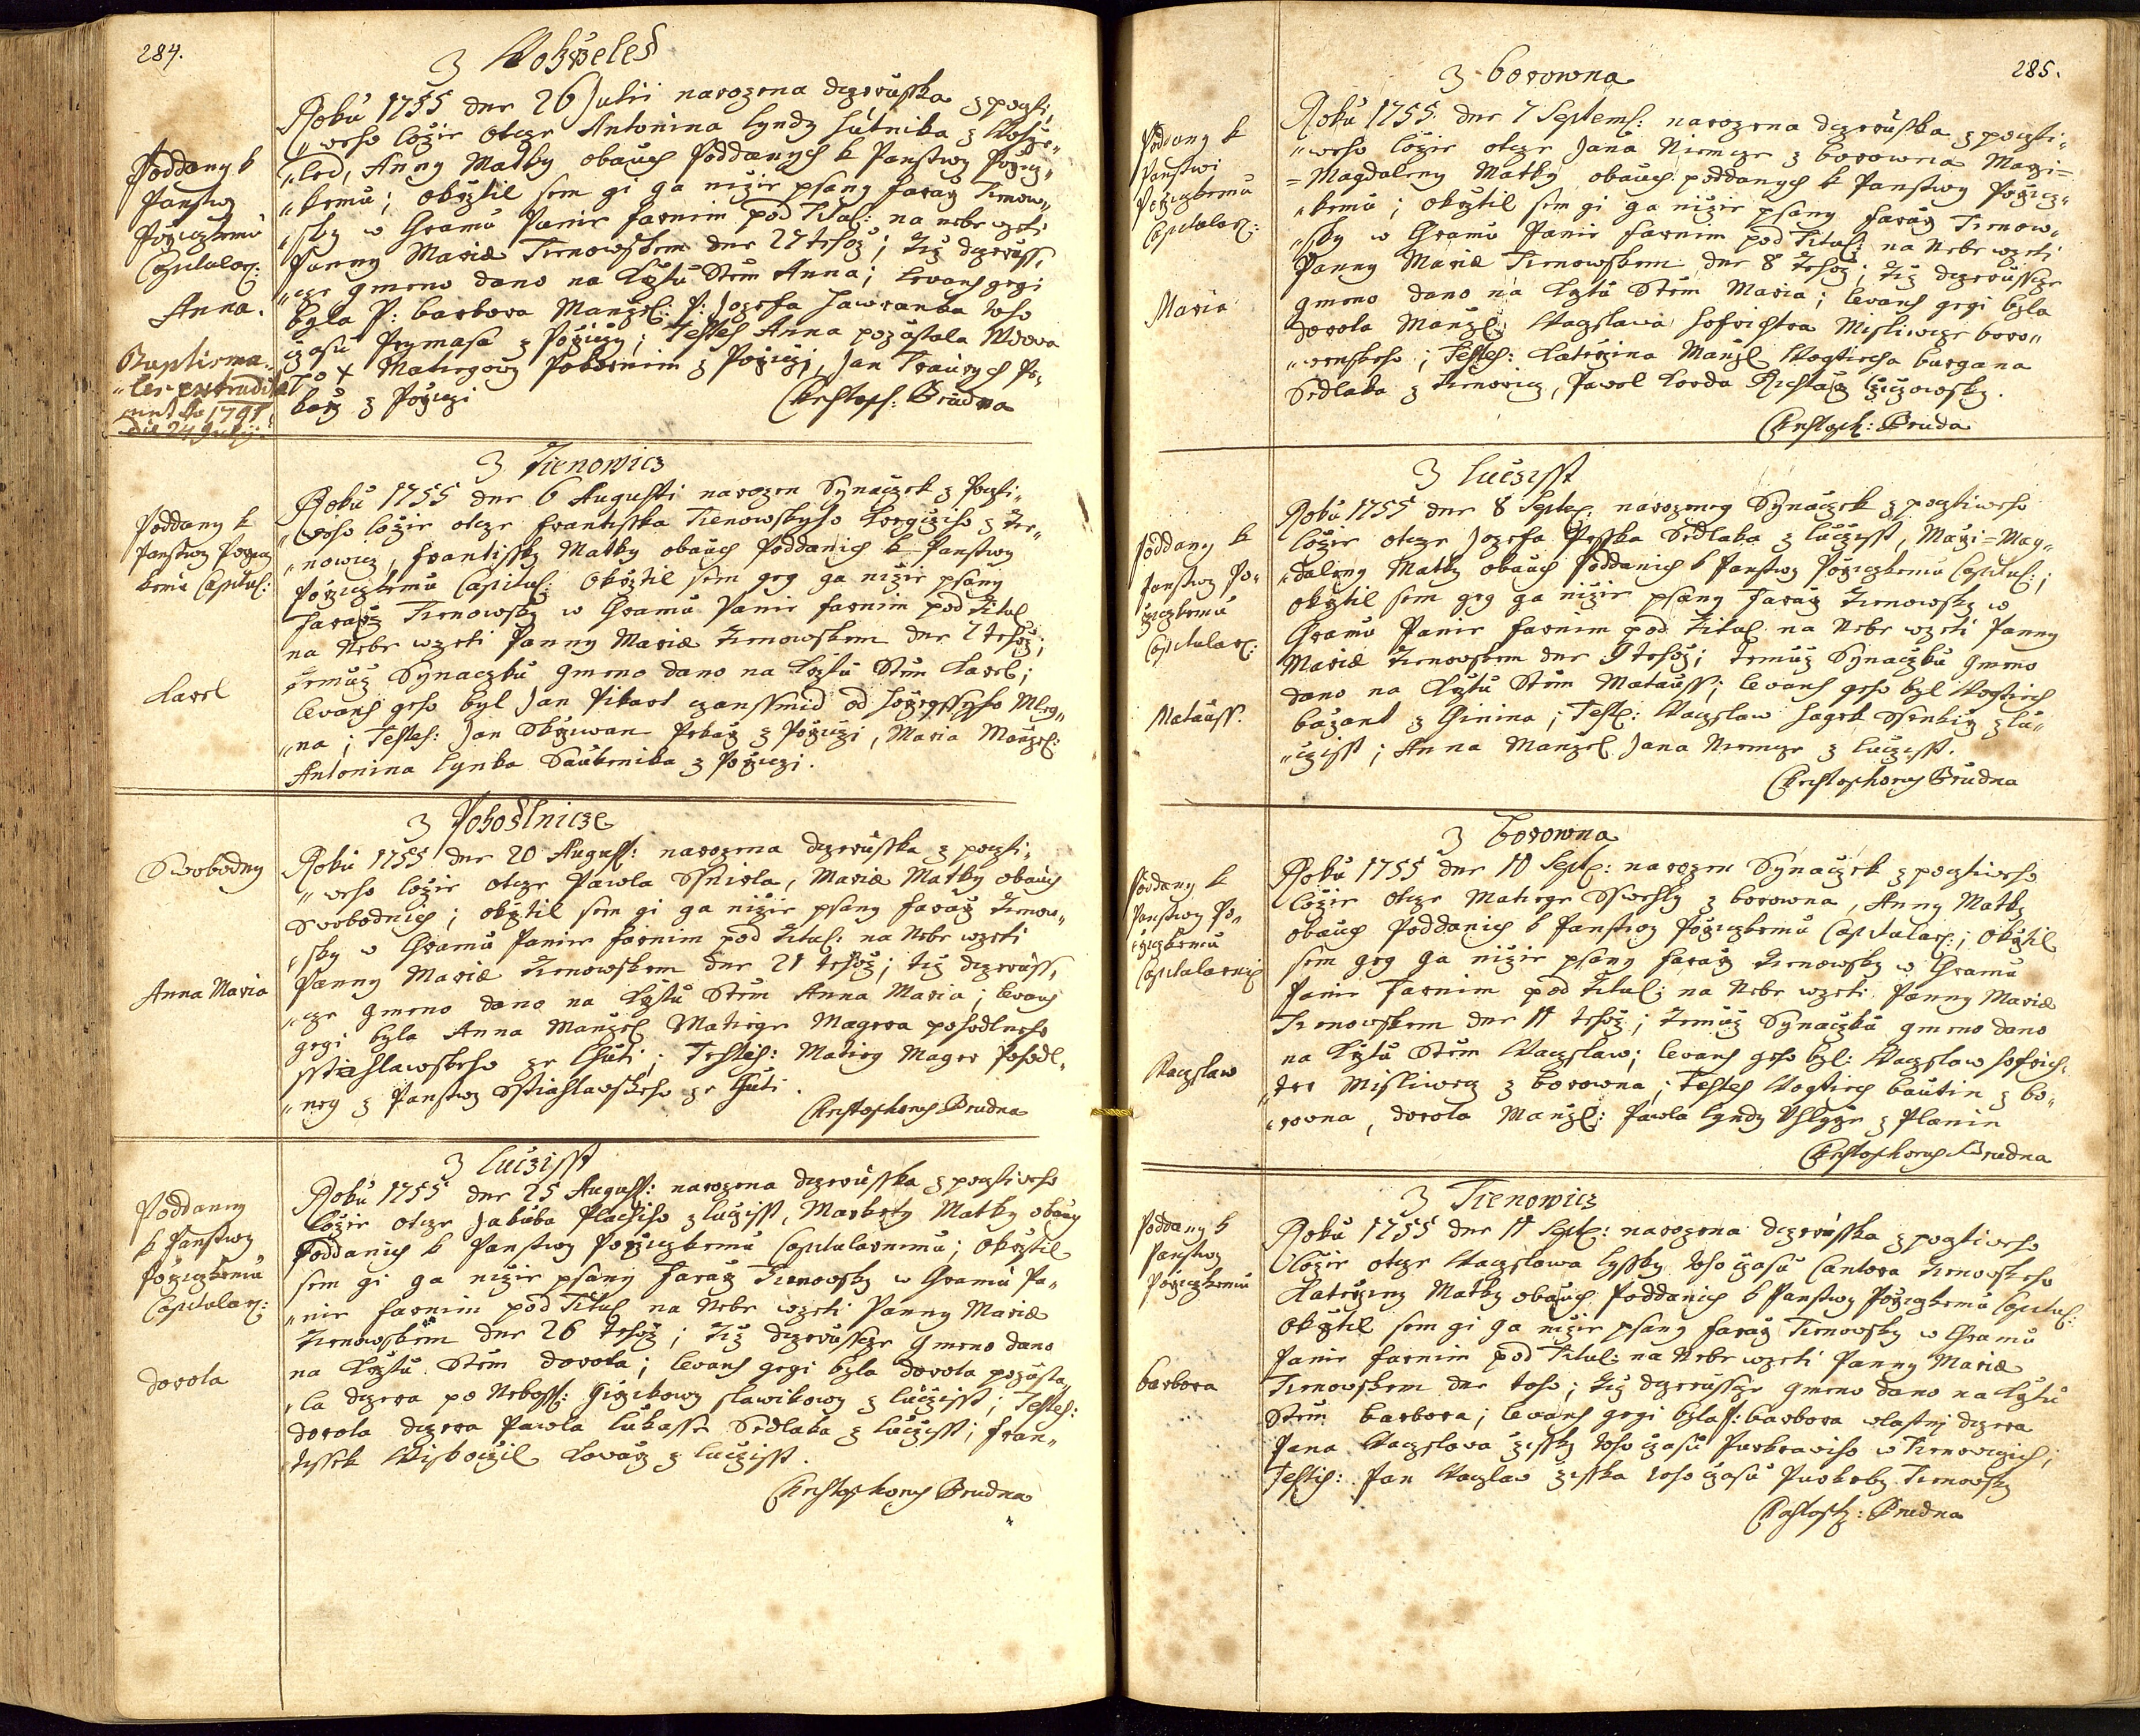 284.
Z Wohřeled
Poddany k
Panstwy
Pořiczkemu
Capitular:
Anna.
Baptisma-
„les extradite
sunt Ao 1791
die 24 Julij.
Roku 1755 dne 26 Julii narozena dczeruska z poczti„
„weho Loźie otcze Antonina Lyndy Hutnika z Wohře„
„led, Anny Matky obauch Poddanych k Panstwy Pořicz„
„kemu; okřztil sem gi ga niźie psany Farař Trenow„
„sky w Chramu Panie Farnim pod Titul: na nebe wzeti
Panny Mariæ Trenowskem dne 27 tehoź; Teź dczerus„
„cze gmeno dano na Křztu Stem Anna; Levans gegi
byla P: Barbora Manźel: P: Jozefa Hawranka toho
cźasu Prymasa z Pořiczy; Testes Anna pozustala Wdova
po † Matiegowy Pokornim z Pořiczj, Jan Krauzych Pe„
karz z Pořiczi
Christoph: Brudna
Z Trenowicz
Poddany k
Panstwy Pořicz
kemu Capitul:
Karel
Roku 1755 dne 6 Augusti narozen Synaczek z Poczti„
„weho Loźie otcze Frantisska Trenowskyho Kregcziho z Tre„
„nowicz, Frantissky Matky obauch Poddanich k Panstwy
Pořiczkemu Capitul: Okřztil sem geg ga niźie psany
Farařz Trenowsky w Chramu Panie Farnim pod Titul
na Nebe wzeti Panny Mariæ Trenowskem dne 7 tehoź;
temuź Synaczku gmeno dano na Křztu Stem Karel;
Levans geho byl Jan Pikart czanssmid od Hořegssyho Mleg„
„na; Testes: Jan Skřiwan Pekař z Pořiczi, Maria Manźel:
Antonina Lynka Saukenika z Pořiczi.
Z Pohodlnicze
Swobodny
Anna Maria
Roku 1755 dne 20 August: narozena dczeruska z poczti„
„weho Loźie otcze Pawla Ssnirla, Mariæ Matky obauch
Swobodnich; okřztil sem gi ga niźie psany Farař Trenow„
„sky w Chramu Panie Farnim pod Titul: na Nebe wzeti
Panny Mariæ Trenowskem dne 21 tehoź; teź dczeruss„
„cze gmeno dano na Křztu Stem Anna Maria; Levans
gegi byla Anna Manźel Matiege Magera pohodlneho
Sstiahlawskeho ze Chuti; Testes: Matieg Mager Pohodl„
„neg z Panstwy Sstiahlawskeho ze Chuti.
Christophorus Brudna
Z Lucźisst
Poddanny
k Panstwy
Pořiczkemu
Capitular:
Dorota
Roku 1755 dne 25 August: narozena dczeruska z pocztiveho
Loźie otcze Jakuba Plachiho z Lucźisst, Markety Matky obauch
Poddanich k Panstwy Pořiczkemu Capitularnimu; Okřztil
sem gi ga niźie psany Farař Trenowsky w Chramu Pa„
„nie Farnim pod Titul na Nebe wzeti Panny Mariæ
Trenowskem dne 26 tehoź; Teź dczerussze gmeno dano
na Křztu Stem Dorota; Levans gegi byla Dorota pozusta„
„la dczera po Neboss: Giřzikowy Slawikowy z Lucźisst; Testes:
Dorota dczera Pawla Lukasse Sedlaka z Lucźisst; Fran„
tissek Wiskoczil Kovař z Lucźisst.
Christophorus Brudna
285.
Z Borowna
Poddany k
Panstwi
Pořiczkemu
Capitular:
Maria
Roku 1755 dne 7 Septemb: narozena dczeruska z poczti„
„weho Loźie otcze Jana Niemcze z Borowna Marzi=
=Magdaleny Matky obauch poddanych k Panstwy Pořicz„
„kemu; okřztil sem gi ga niźie psany Farař Trenow„
„sky w Chramu Panie Farnim pod Titul: na Nebe wzeti
Panny Mariæ Trenowskem dne 8 tehoź; teź dczerusscze
gmeno dano na Křztu Stem Maria; Levans gegi byla
Dorota Manźel: Waczslawa Hofrichtra Misliwcze Boro„
„wenskeho; Testes: Kateřzina Manźel Wogtiecha Burgana
Sedlaka z Trenowicz, Pavel Korda Richtař Cźiczowsky.
Christoph: Bruda
Z Lucźisst
Poddany k
Panstwy Po„
řiczkemu
Capitular:
Matauss.
Roku 1755 dne 8 Septe: narozeny Synaczek z pocztiweho
Loźie otcze Jozefa Pesska Sedlaka z Lucźisst, Marzi=Mag„
„daleny Matky obauch Poddanich k Panstwy Pořiczkemu Capitul:;
okřztil sem geg ga niźie psany Farař Trenowsky w
Chramu Panie Farnim pod Titul na Nebe wzeti Panny
Mariæ Trenowskem dne 9 tehoź; temuź Synaczku gmeno
dano na Křztu Stem Matauss; Levans geho byl Wogtiech
Baźant z Ginina; Test: Waczslaw Hagek Ssenkiř z Lu„
„cźisst; Anna Manźel Jana Niemcze z Lucźisst.
Christophorus Brudna
Z Borowna
Poddany k
Panstwy Po„
řiczkemu
Capitularnich
Waczslaw
Roku 1755 dne 10 Septe: narozen Synaczek z pocztiweho
Loźie otcze Matiege Sswehtly z Borowna, Anny Matky
obauch Poddanich k Panstwy Pořiczkemu Capitular:; Okřztil
sem geg ga niźie psany Farař Trenowsky w Chramu
Panie Farnim pod Titul: na Nebe wzeti Panny Mariæ
Trenowskem dne 11 tehoź; temuź Synaczku gmeno dano
na Křztu Stem Waczslaw; Levans geho byl: Waczslaw Hofrich„
„ter Misliwecz z Borowna; Testes Wogtiech Bautin z Bo„
„rowna, Dorota Manźel: Pawla Lyndy Uhlyře z Planin
Christophorus Brudna
Z Trenowicz
Poddany k
Panstwy
Pořiczkemu
Barbora
Roku 1755 dne 11 Septe: narozena dczeruska z pocztiweho
Loźie otcze Waczslawa Lyssky toho cźasu Cantora Trenowskeho
Kateřziny Matky obauch Poddanich k Panstwy Pořiczkemu Capitul:
Okřztil sem gi ga niźie psany Farař Trenowsky w Chramu
Panie Farnim pod Titul: na Nebe wzeti Panny Mariæ
Trenowskem dne toho; teź dczerussze gmeno dano na Křztu
Stem Barbora; Levans gegi byla P: Barbora wlastnj dczera
Pana Waczslava Zisska toho cźasu Purkrawiho w Trenowiczich;
Testis: Pan Waczlaw Zisska toho cźasu Purkraby Trenowsky
Christoph: Brudna